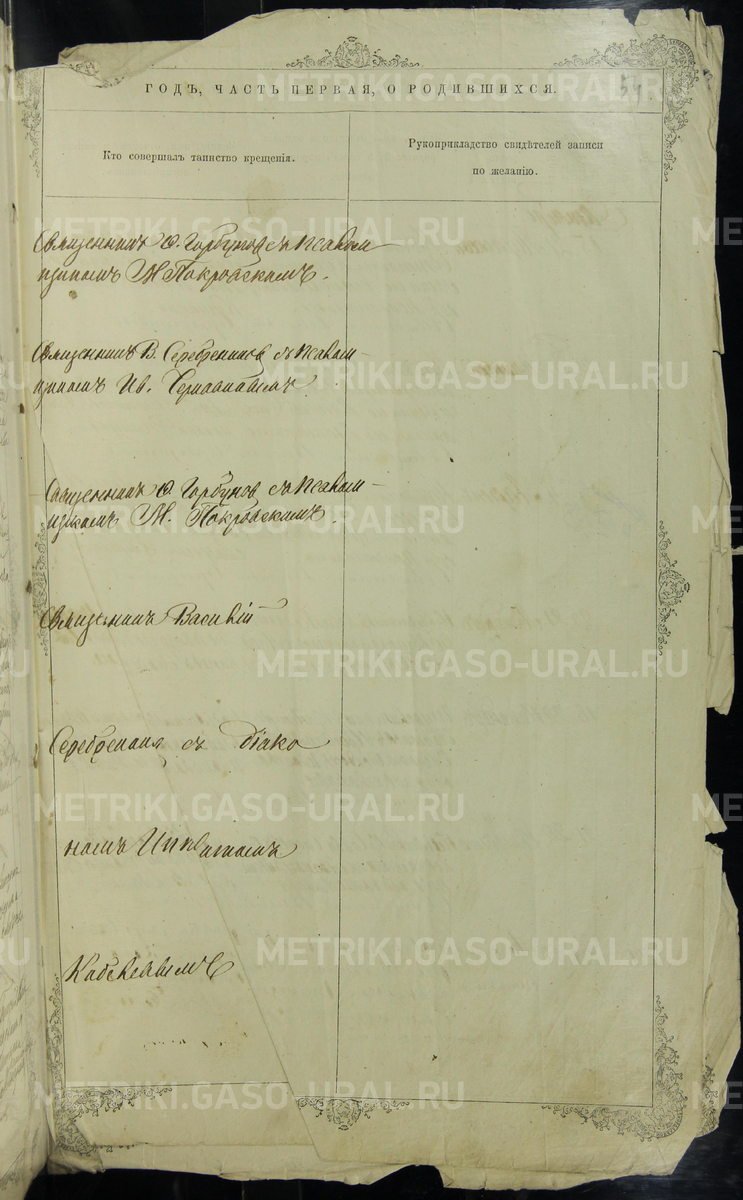 ГОДЪ, ЧАСТЬ ПЕРВАЯ, О РОДИВШИХСЯ.
Кто совершалъ таинство крещенія.
Рукоприкладство свидѣтелей записи
по желанію.
Священникъ Ѳ. Горбуновъ съ псалом
щикомъ М. Покровскимъ.
Священникъ В. Серебренниковъ съ псалом-
щикомъ Ив.
Священникъ Ѳ. Горбуновъ съ псалом-
щикомъ М. Покровскимъ.
Священникъ Василій
съ діако
номъ
METRIKI.GASO-URAL.RU